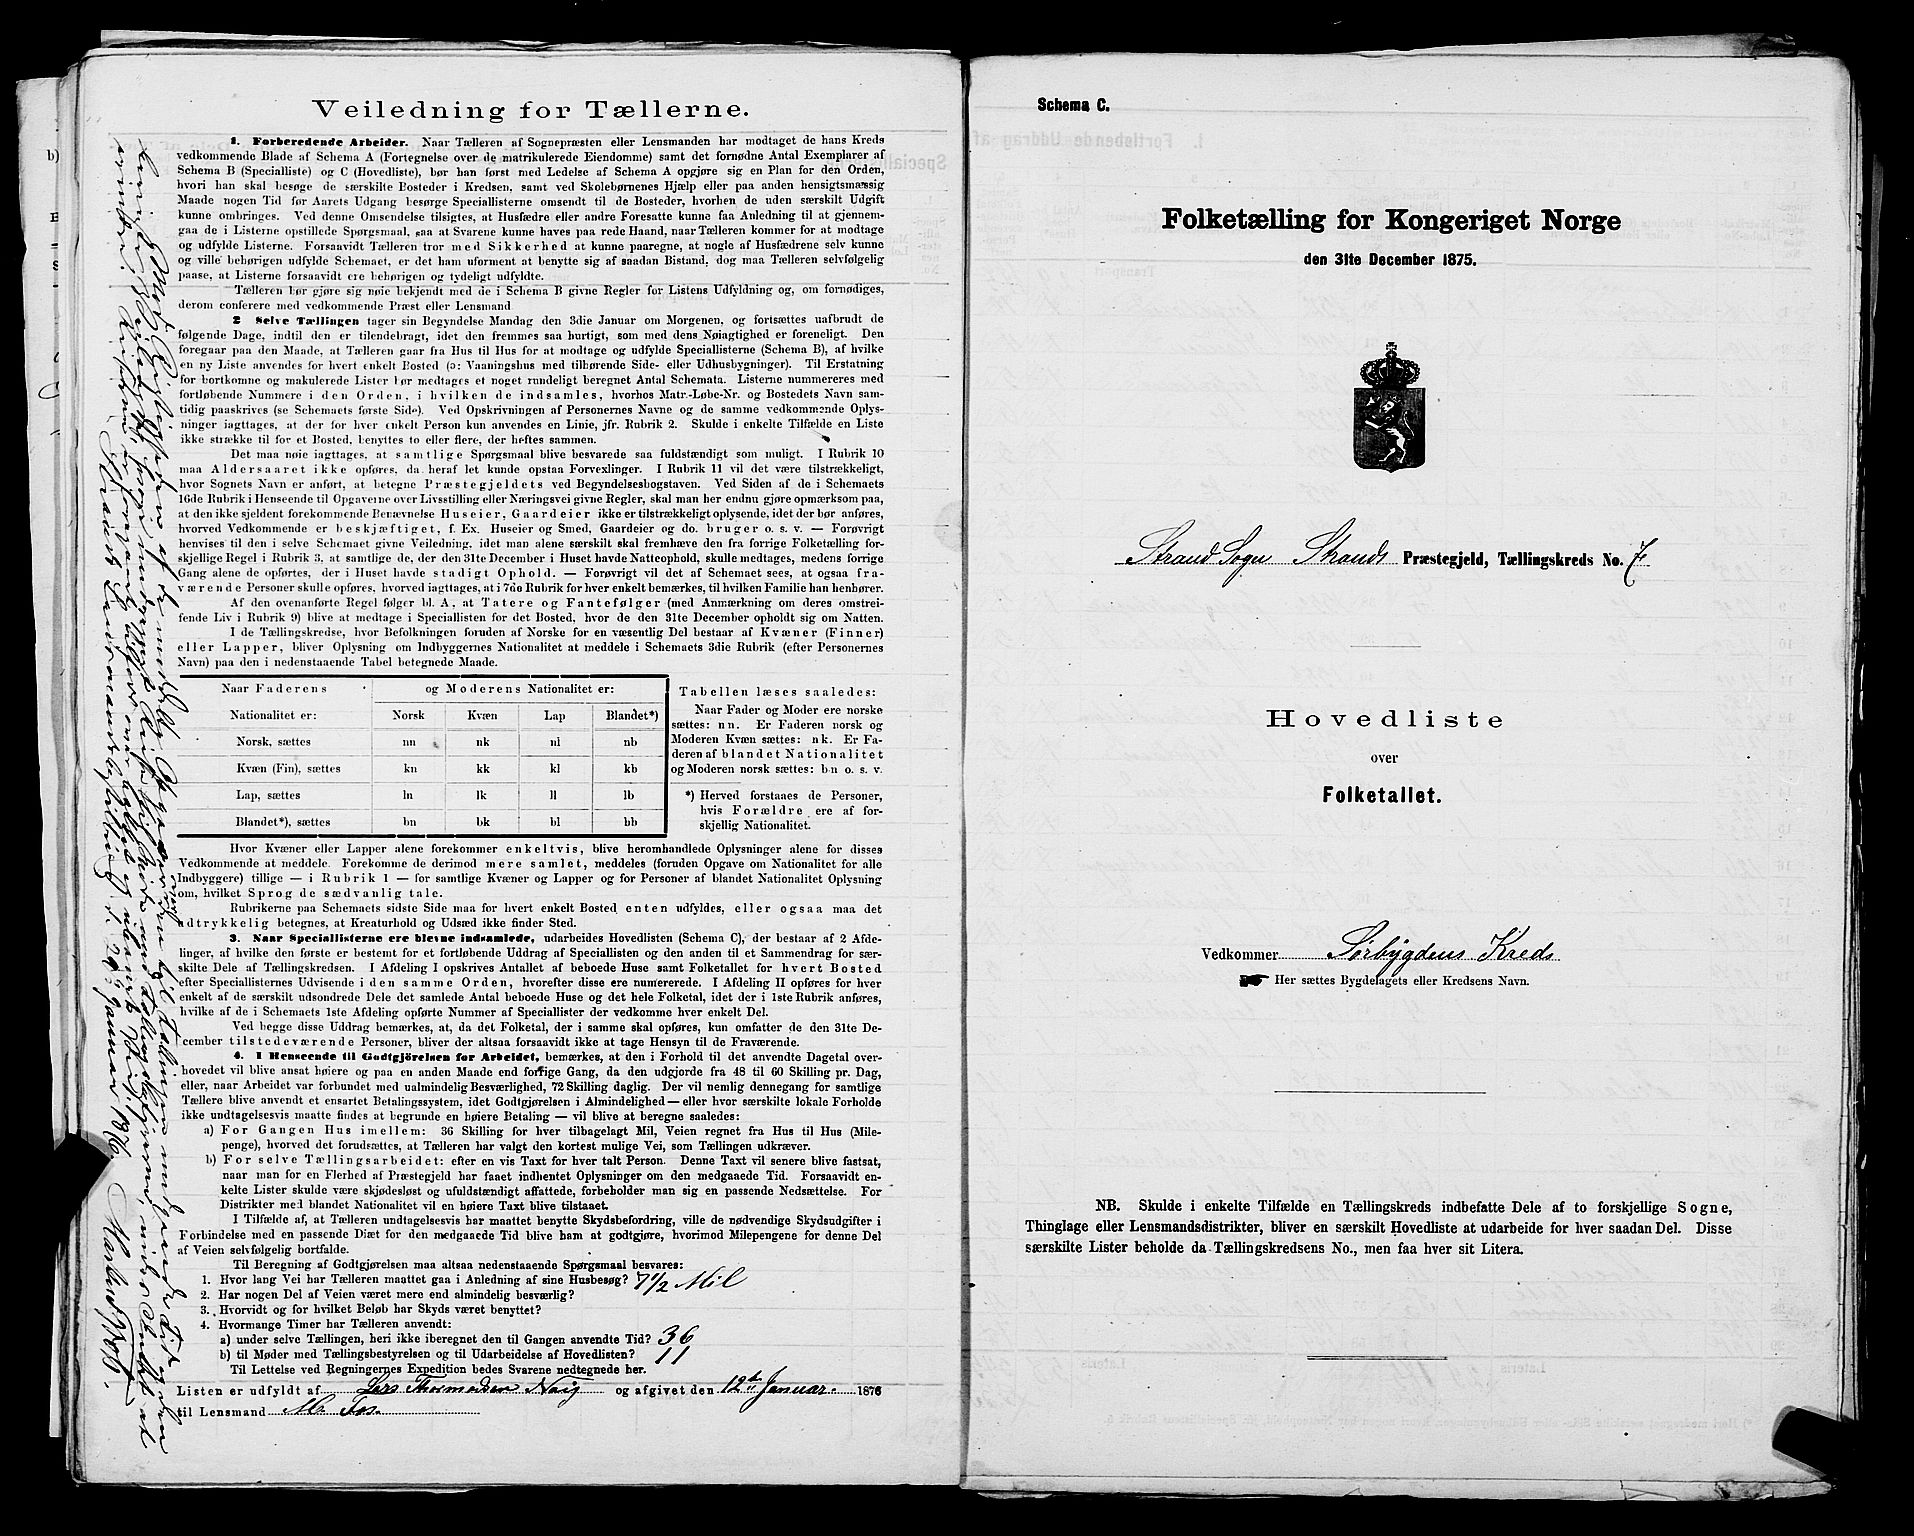 Veiledning for Tællerne.
1. Forberedende Arbeider. Naar Tælleren af Sognepræsten eller Lensmanden har modtaget de hans Kreds
vedkommende Blade af Schema A (Fortegnelse over de matrikulerede Eiendomme) samt det fornødne Antal Exemplarer af
Schema B (Specialliste) og C (Hovedliste), bør han først med Ledelse af Schema A opgjøre sig en Plan for den Orden,
hvori han skal besøge de særskilte Bosteder i Kredsen, samt ved Skolebørnenes Hjælp eller paa anden hensigtsmæssig
Maade nogen Tid før Aarets Udgang besørge Speciallisterne omsendt til de Bosteder, hvorhen de uden særskilt Udgift
kunne ombringes. Ved denne Omsendelse tilsigtes, at Husfædre eller andre Foresatte kunne faa Anledning til at gjennem-
gaa de i Listerne opstillede Spørgsmaal, saa at Svarene kunne haves paa rede Haand, naar Tælleren kommer for at modtage
og udfylde Listerne. Forsaavidt Tælleren tror med Sikkerhed at kunne paaregne, at nogle af Husfædrene selv kunne
og ville behørigen udfylde Schemaet, er det ham uforment at benytte sig af saadan Bistand, dog maa Tælleren selvfølgelig
paase, at Listerne forsaavidt ere behørigen og tydeligt udfyldte.
Tælleren bør gjøre sig nøie bekjendt med de i Schema B givne Regler for Listens Udfyldning og, om fornødiges,
derom conferere med vedkommende Præst eller Lensmand
2 Selve Tællingen tager sin Begyndelse Mandag den 3die Januar om Morgenen, og fortsættes uafbrudt de
følgende Dage, indtil den er tilendebragt, idet den fremmes saa hurtigt, som med dens Nøiagtighed er foreneligt. Den
foregaar paa den Maade, at Tælleren gaar fra Hus til Hus for at modtage og udfylde Speciallisterne (Schema B), af hvilke
en ny Liste anvendes for hvert enkelt Bosted (ɔ: Vaaningshus med tilhørende Side- eller Udhusbygninger). Til Erstatning
for bortkomne og makulerede Lister bør medtages et noget rundeligt beregnet Antal Schemata. Listerne nummereres med
fortløbende Nummere i den Orden, i hvilken de indsamles, hvorhos Matr.-Løbe-Nr. og Bostedets Navn sam-
tidig paaskrives (se Schemaets første Side). Ved Opskrivningen af Personernes Navne og de samme vedkommende Oplys-
ninger iagttages, at der for hver enkelt Person kun anvendes en Linie, jfr. Rubrik 2. Skulde i enkelte Tilfælde en Liste
ikke strække til for et Bosted, benyttes to eller flere, der heftes sammen.
Det maa nøie iagttages, at samtlige Spørgsmaal blive besvarede saa fuldstændigt som muligt. I Rubrik 10
maa Aldersaaret ikke opføres, da heraf let kunde opstaa Forvexlinger. I Rubrik 11 vil det være tilstrækkeligt,
hvor Sognets Navn er anført, at betegne Præstegjeldets ved Begyndelsesbogstaven. Ved Siden af de i Schemaets
16de Rubrik i Henseende til Opgaverne over Livsstilling eller Næringsvei givne Regler, skal man her endnu gjøre opmærksom paa,
at den ikke sjeldent forekommende Benævnelse Huseier, Gaardeier ikke er tilstrækkeligt oplysende, idet der bør anføres,
hvorved Vedkommende er beskjæftiget, f. Ex. Huseier og Smed, Gaardeier og do. bruger o. s. v. — Forøvrigt
henvises til den i selve Schemaet givne Veiledning, idet man alene særskilt skal fremhæve den fra forrige Folketælling for-
skjellige Regel i Rubrik 3, at samtlige de, der den 31te December i Huset havde Natteophold, skulle medtages, medens forrige
Gang alene de opførtes, der i Huset havde stadigt Ophold. — Forøvrigt vil det af Schemaet sees, at ogsaa fra-
værende Personer skulle opføres, hvorved iagttages, at i 7de Rubrik for hver enkelt bemærkes, til hvilken Familie han henhører.
Af den ovenanførte Regel følger bl. A, at Tatere og Fantefølger (med Anmærkning om deres omstrei-
fende Liv i Rubrik 9) blive at medtage i Speciallisten for det Bosted, hvor de den 31te December opholdt sig om Natten.
I de Tællingskredse, hvor Befolkningen foruden af Norske for en væsentlig Del bestaar af Kvæner (Finner)
eller Lapper, bliver Oplysning om Indbyggernes Nationalitet at meddele i Schemaets 3die Rubrik (efter Personernes
Navn) paa den i nedenstaaende Tabel betegnede Maade.
Naar Faderens og Moderens Nationalitet er:
Nationalitet er: Norsk Kvæn Lap Blandet*)
Norsk, sættes nn nk nl nb
Kvæn (Fin), sættes kn kk kl kb
Lap, sættes ln lk ll lb
Blandet*), sættes bn bk bl bb
Tabellen læses saaledes:
Naar Fader og Moder ere norske
sættes: nn. Er Faderen norsk og
Moderen Kvæn sættes: nk. Er Fa-
deren af blandet Nationalitet
og Moderen norsk sættes: bn o. s. v.
*) Herved forstaaes de Personer,
hvis Forældre ere af for-
skjellig Nationalitet.
Hvor Kvæner eller Lapper alene forekommer enkeltvis, blive heromhandlede Oplysninger alene for disses
Vedkommende at meddele. Forekomme de derimod mere samlet, meddeles (foruden Opgave om Nationalitet for alle
Indbyggere) tillige — i Rubrik 1 — for samtlige Kvæner og Lapper og for Personer af blandet Nationalitet Oplysning
om, hvilket Sprog de sædvanlig tale.
Rubrikerne paa Schemaets sidste Side maa for hvert enkelt Bosted enten udfyldes, eller ogsaa maa det
udtrykkelig betegnes, at Kreaturhold og Udsæd ikke finder Sted.
3. Naar Speciallisterne ere blevne indsamlede, udarbeides Hovedlisten (Schema C), der bestaar af 2 Afde-
linger, af hvilke den første er bestemt for et fortløbende Uddrag af Speciallisten og den anden til et Sammendrag for sær-
skilte Dele af Tællingskredsen. I Afdeling I opskrives Antallet af beboede Huse samt Folketallet for hvert Bosted
efter Speciallisternes Udvisende i den samme Orden, hvorefter disse ere numererede. I Afdeling II opføres for hver
enkelt af de særskilt udsondrede Dele det samlede Antal beboede Huse og det hele Folketal, idet der i 1ste Rubrik anføres,
hvilke af de i Schemaets 1ste Afdeling opførte Nummer af Speciallister der vedkomme hver enkelt Del.
Ved begge disse Uddrag bemærkes, at, da det Folketal, der i samme skal opføres, kun omfatter de den 31te De-
cember tilstedeværende Personer, bliver der altsaa forsaavidt ikke at tage Hensyn til de Fraværende.
4. I Henseende til Godtgjörelsen for Arbeidet, bemærkes, at den i Forhold til det anvendte Dagetal over-
hovedet vil blive ansat høiere og paa en anden Maade end forrige Gang, da den udgjorde fra 48 til 60 Skilling pr. Dag,
eller, naar Arbeidet var forbundet med ualmindelig Besværlighed, 72 Skilling daglig. Der vil nemlig dennegang for samtlige
Tællere blive anvendt et ensartet Betalingssystem, idet Godtgjørelsen i Almindelighed — eller hvor særskilte lokale Forholde
ikke undtagelsesvis maatte findes at begrunde en høiere Betaling — vil blive at beregne saaledes:
a) For Gangen Hus imellem: 36 Skilling for hver tilbagelagt Mil, Veien regnet fra Hus til Hus (Mile-
penge), hvorved det forudsættes, at Tælleren har valgt den kortest mulige Vei, som Tællingen udkræver.
b) For selve Tællingsarbeidet: efter en vis Taxt for hver talt Person. Denne Taxt vil senere blive fastsat,
naar man for en Flerhed af Præstegjeld har faaet indhentet Oplysninger om den medgaaede Tid. Forsaavidt en-
kelte Lister skulde være skjødesløst og ufuldstændigt affattede, forbeholder man sig en passende Nedsættelse. For
Distrikter med blandet Nationalitet vil en høiere Taxt blive tilstaaet.
I Tilfælde af, at Tælleren undtagelsesvis har maattet benytte Skydsbefordring, ville de nødvendige Skydsudgifter i
Forbindelse med en passende Diæt for den medgaaede Tid blive ham at godtgjøre, hvorimod Milepengene for denne Del
af Veien selvfølgelig bortfalde.
Til Beregning af Godtgjørelsen maa altsaa nedenstaaende Spørgsmaal besvares:
1. Hvor lang Vei har Tælleren maattet gaa i Anledning af sine Husbesøg? 7 1/2 Mil
2. Har nogen Del af Veien været mere end almindelig besværlig?
3. Hvorvidt og for hvilket Beløb har Skyds været benyttet?
4. Hvormange Timer har Tælleren anvendt:
a) under selve Tællingen, heri ikke iberegnet den til Gangen anvendte Tid? 36
b) til Møder med Tællingsbestyrelsen og til Udarbeidelse af Hovedlisten? 11
Til Lettelse ved Regningernes Expedition bedes Svarene nedtegnede her.
Listen er udfyldt af Lars Thormodsen Nag og afgivet den 12te Januar 1876
til Lensmand M. Fos.
Schema C.
Folketælling for Kongeriget Norge
den 31te December 1875.
Strand Sogn Strands Præstegjeld, Tællingskreds No. 7
Hovedliste
over
Folketallet.
Vedkommer Sørbygdens Kreds
Her sættes Bygdelagets eller Kredsens Navn.
NB. Skulde i enkelte Tilfælde en Tællingskreds indbefatte Dele af to forskjellige Sogne,
Thinglage eller Lensmandsdistrikter, bliver en særskilt Hovedliste at udarbeide for hver saadan Del. Disse
særskilte Lister beholde da Tællingskredsens No., men faa hver sit Litera.